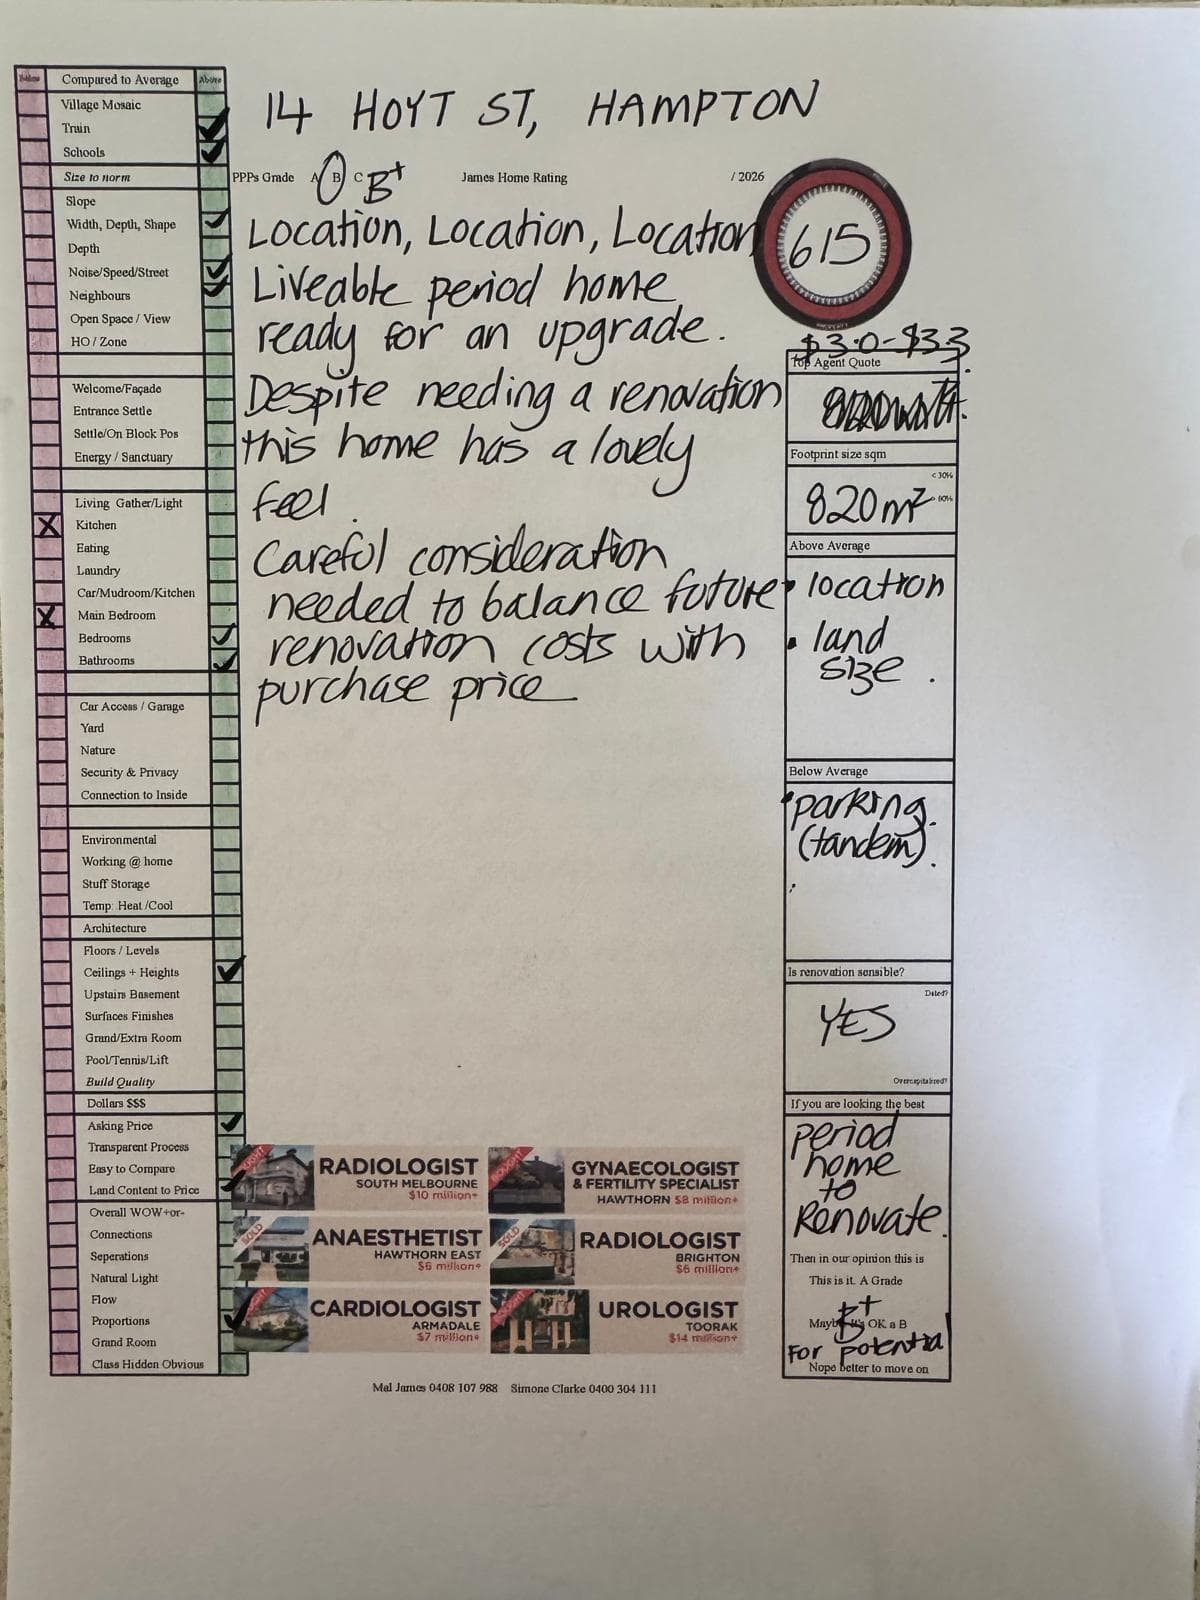 Below Compared to Average Above
Village Mosaic
Train
Schools
Size to norm
Slope
Width, Depth, Shape
Depth
Noise/Speed/Street
Neighbours
Open Space / View
HO / Zone
Welcome/Façade
Entrance Settle
Settle/On Block Pos
Energy / Sanctuary
Living Gather/Light
Kitchen
Eating
Laundry
Car/Mudroom/Kitchen
Main Bedroom
Bedrooms
Bathrooms
Car Access / Garage
Yard
Nature
Security & Privacy
Connection to Inside
Environmental
Working @ home
Stuff Storage
Temp: Heat /Cool
Architecture
Floors / Levels
Ceilings + Heights
Upstairs Basement
Surfaces Finishes
Grand/Extra Room
Pool/Tennis/Lift
Build Quality
Dollars $$$
Asking Price
Transparent Process
Easy to Compare
Land Content to Price
Overall WOW+or-
Connections
Seperations
Natural Light
Flow
Proportions
Grand Room
Class Hidden Obvious
14 HOYT ST, HAMPTON
PPPs Grade A B C B+ James Home Rating / 2026
615
Location, Location, Location
Liveable period home
ready for an upgrade.
Despite needing a renovation
this home has a lovely
feel.
Careful consideration
needed to balance future
renovation costs with
purchase price
$3.0-$3.3
Top Agent Quote
Footprint size sqm
< 30%
820m²
> 80%
Above Average
• location
• land
size.
Below Average
• parking.
(tandem).
Is renovation sensible?
Dated?
YES
Overcapitalised?
If you are looking the best
period
home
to
Renovate.
Then in our opinion this is
This is it. A Grade
B+
Maybe It's OK a B
For potential
Nope better to move on
BOUGHT
RADIOLOGIST
SOUTH MELBOURNE
$10 million+
BOUGHT
GYNAECOLOGIST
& FERTILITY SPECIALIST
HAWTHORN $8 million+
SOLD
ANAESTHETIST
HAWTHORN EAST
$6 million+
SOLD
RADIOLOGIST
BRIGHTON
$6 million+
BOUGHT
CARDIOLOGIST
ARMADALE
$7 million+
BOUGHT
UROLOGIST
TOORAK
$14 million+
Mal James 0408 107 988 Simone Clarke 0400 304 111